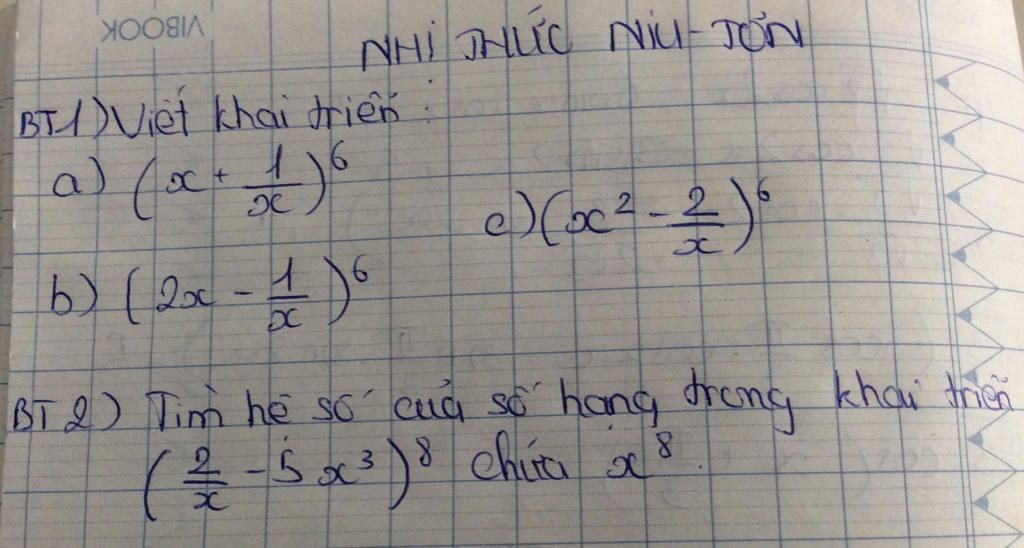 VIBOOK
NHỊ THỨC NIU-TƠN
BT1) Viết khai triển:
a) (x + 1/x)^6
c) (x² - 2/x)^6
b) (2x - 1/x)^6
BT2) Tìm hệ số của số hạng trong khai triển
(2/x - 5x³)^8 chứa x^8.